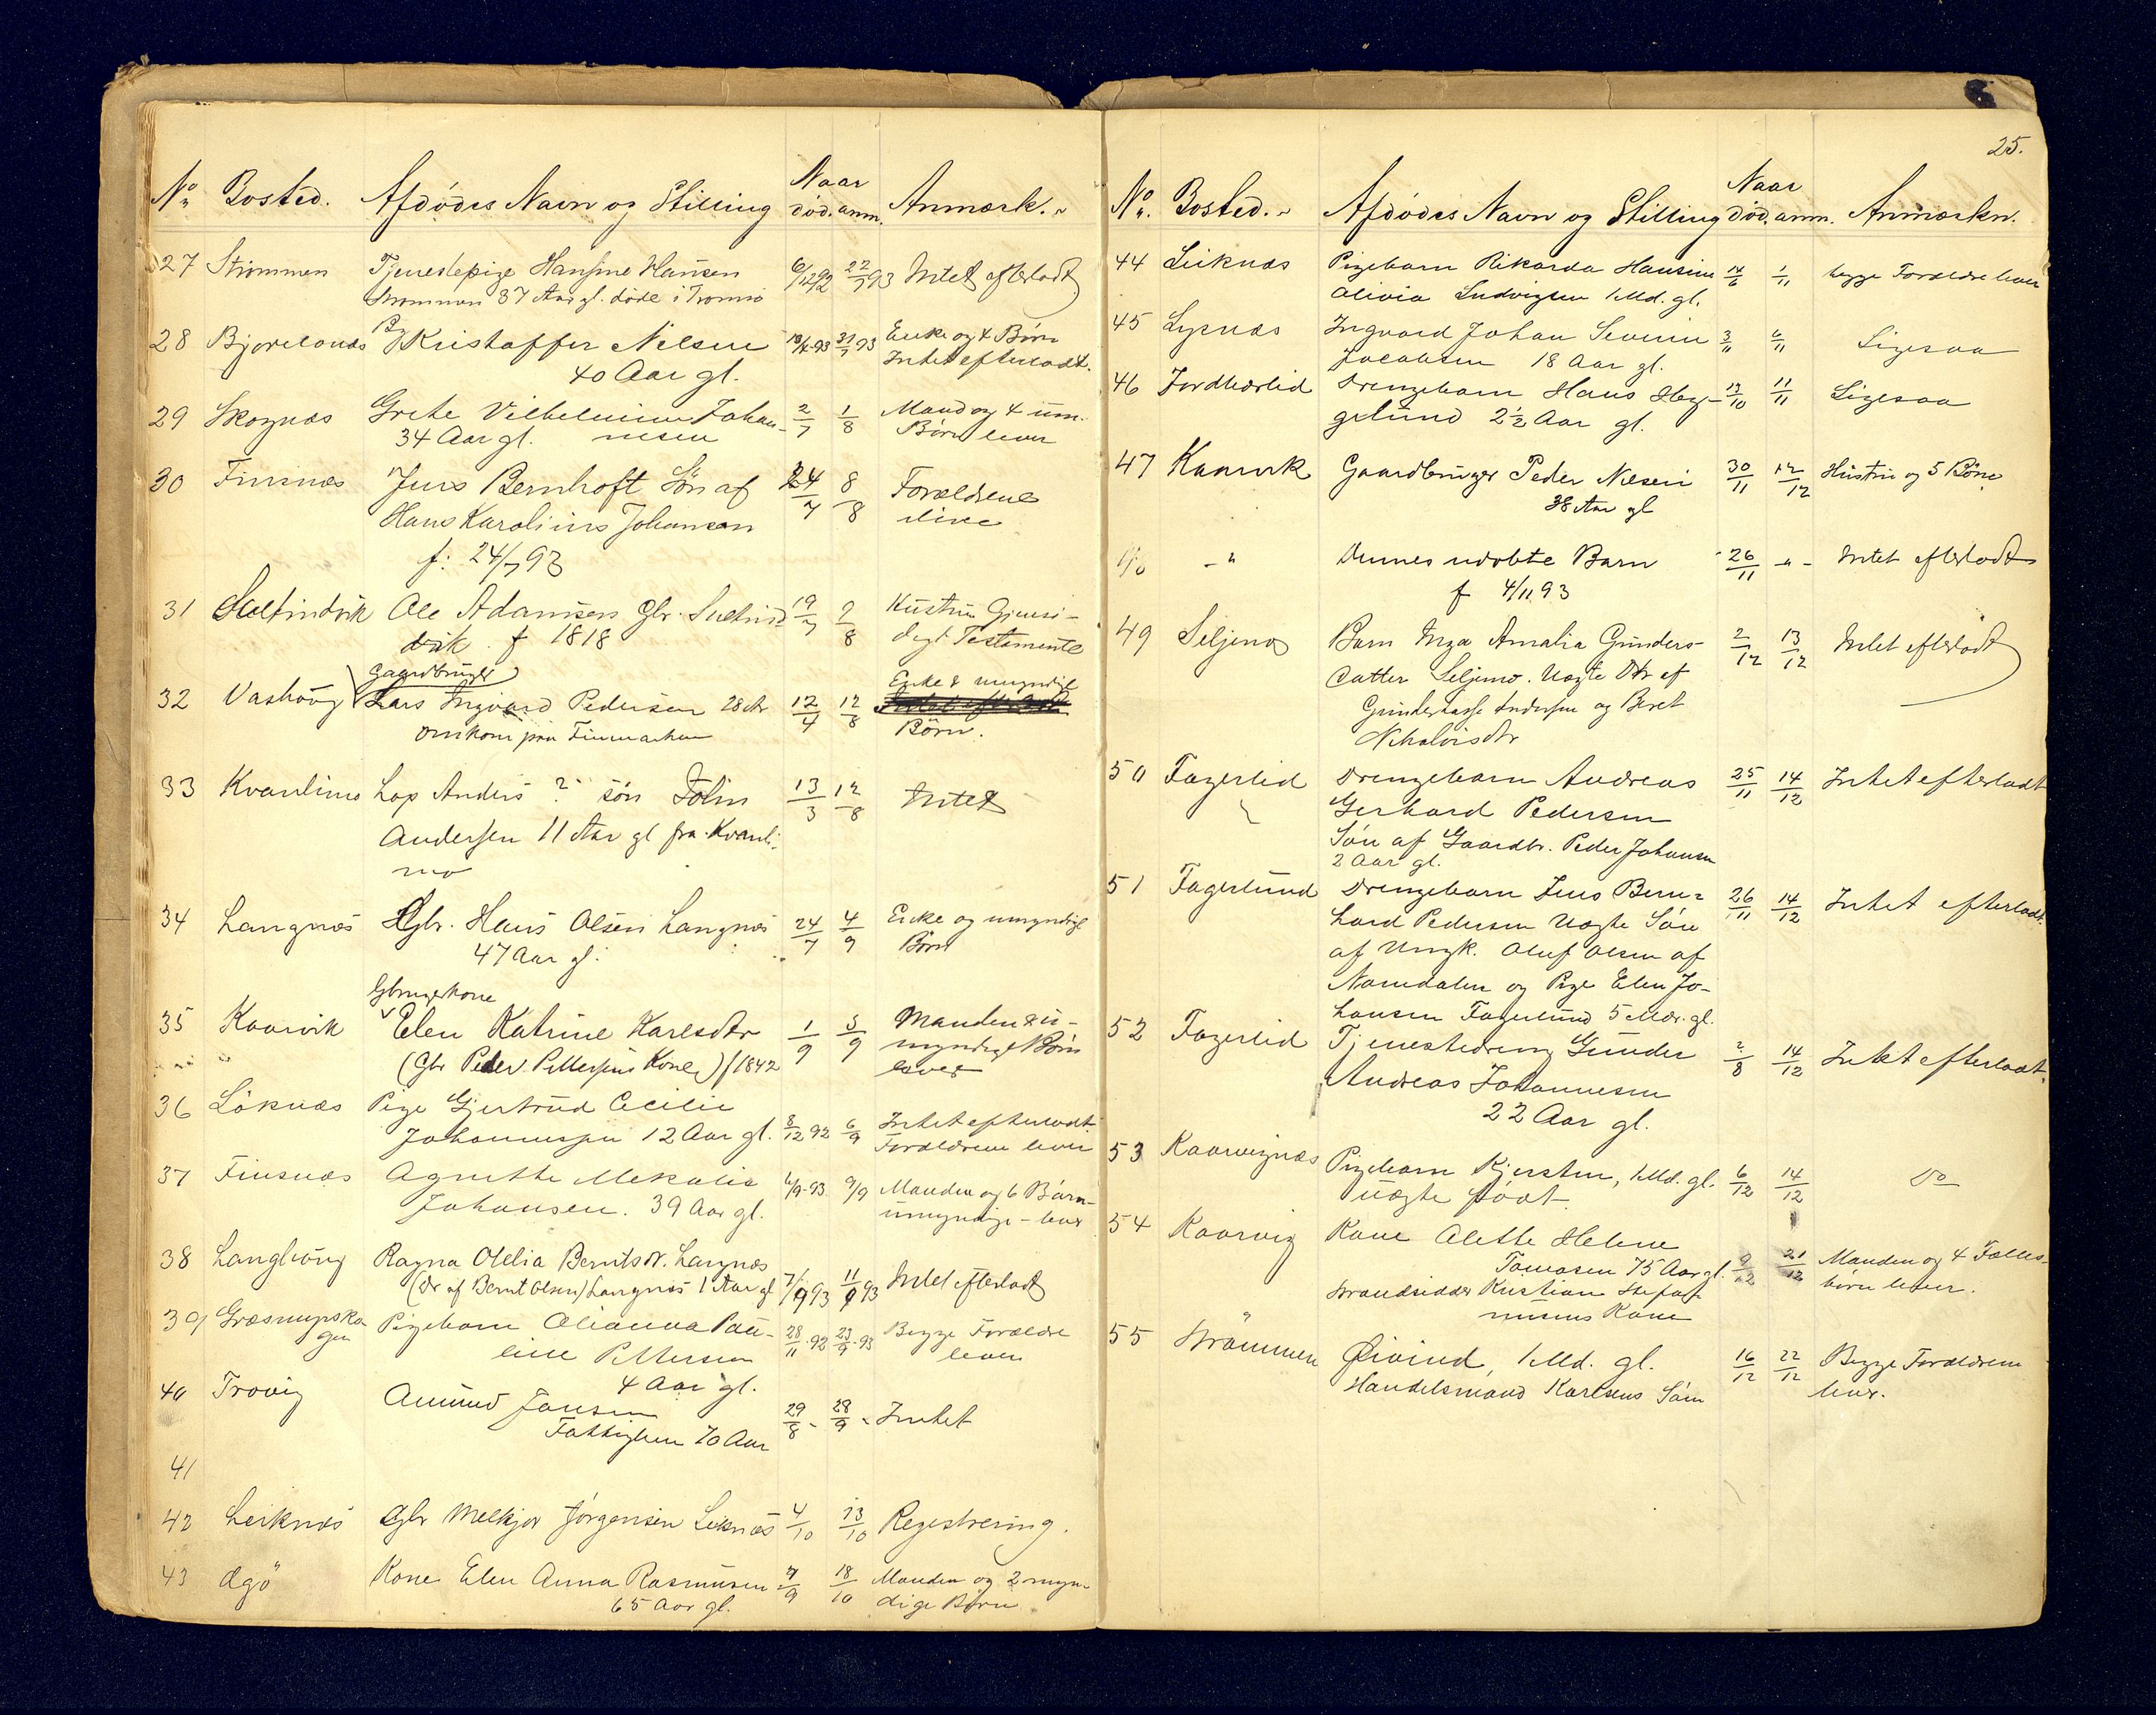 No Bosted. Afdödes Navn og Stilling Naar död. anm. Anmærk.
27 Strömmen Tjenestepige Hansine Hansen 6/12 92 22/7 93 Intet efterladt
Strömmen 37 Aar gl. döde i Tromsö
28 Bjorelvnæs Kristoffer Nilsen 10/4 93 31/7 93 Enke og 4 Börn
40 Aar gl. Intet efterladt.
29 Skognæs Grete Vilhelmine Johan- 2/7 1/8 Mand og 4 um.
34 Aar gl. nesen Börn lever
30 Finsnæs Jens Bernhoft Sön af 24/7 8/8 Forældrene
Hans Karolius Johansen
f. 24/7 93
31 Sultindvik Ole Adamsen Gbr. Sultind- 19/7 9/8 Hustru Gjensi-
vik f 1818 digt Testamente
Gaardbruger
32 Vashaug Lars Ingvard Pedersen 28 Ar 12/4 12/8 Enke & umyndig
omkom paa Finmarken Börn.
33 Kvanlimo Lap Anders ? sön 13/3 12/8 Intet
Andersen 11 Aar gl fra Kvanli-
mo
34 Langnæs Gbr. Hans Olsen Langnæs 24/7 4/9 Enke og umyndige
47 Aar gl. Börn
Gbrugerkone
35 Kaarvik Elen Katrine Karlsdtr 1/9 5/9 Manden & u-
(Gbr Peder Pettersens Kone) f 1842 myndige Börn
lever
36 Löknæs Pige Gjertrud Cecilie
Johannesen 12 Aar gl. 8/12 92 6/9 Intet efterladt.
Forældrene lever
37 Finsnæs Agnethe Mekalie 6/9 93 9/9 Manden og 6 Börn
Johansen. 39 Aar gl. umyndige - lever
38 Langhaug Ragna Otelia Berntsdr. Langnæs
(Dr af Bernt Olsen) Langnæs 1 Aar gl 7/9 93 11/9 93 Intet efterladt
39 Græsmyrsko- Pigebarn Olianna Pau- 28/11 92 23/9 93 Begge Forældre
gen line Pettersen lever
4 Aar gl.
40 Trovig Amund Jansen 29/8 28/9 Intet
Fattiglem 70 Aar
41
42 Leiknæs Gbr Melkjor Jörgensen Leknæs 4/10 13/10 Registrering.
43 Ægö Kone Elen Anna Rasmusen 7/9 18/10 Manden og 2 myn-
65 Aar gl. dige Börn
25.
No. Bosted. Afdödes Navn og Stilling Naar död. anm. Anmærkn.
44 Leiknæs Pigebarn Rikarda Hansine 14/6 1/11 begge Forældre lever
Olivia Ludvigsen 1 Md. gl.
45 Lysnæs Ingvard Johan Severin 3/11 6/11 Ligesaa
Jacobsen 18 Aar gl.
46 Jordbærlid Drengebarn Hans Heg- 13/10 11/11 Ligesaa
gelund 2½ Aar gl.
47 Kaarvik Gaardbruger Peder Nilsen 30/11 12/12 Hustru og 5 Börn
38 Aar gl
- " Dennes udöbte Barn 26/11 - " - Intet efterladt
f 4/11 93
49 Seljemo Barn Inga Amalia Gunders- 2/12 13/12 Intet efterladt
datter Seljemo. Uægte Dtr af
Andersen og Beret
Nikolaisdtr
50 Fagerlid Drengebarn Andreas 25/11 14/12 Intet efterladt
Gerhard Pedersen
Sön af Gaardbr. Peder Johansen
2 Aar gl.
51 Fagerlund Drengebarn Jens Bern- 26/11 14/12 Intet efterladt.
hard Pedersen Uægte Sön
af Ungk. Oluf Olsen af
Namdalen og Pige Elen Jo-
hansen Fagerlund 5 Mdr. gl.
52 Fagerlid Tjenestedreng Gunder 2/8 14/12 Intet efterladt.
Andreas Johannesen
22 Aar gl.
53 Kaarvignæs Pigebarn Kjersten, 1 Md. gl. 6/12 14/12 Do
uægte födt.
54 Kaarvig Kone Alette Helene
Tomasen 75 Aar gl. 9/12 21/12 Manden og 4 Fælles-
Strandsidder Kristian Stefa- börn lever.
nusens Kone
55 Strömmen Øivind, 1 Md. gl. 16/12 22/12 Begge Forældrene
Handelsmand Karlsens Sön lever.